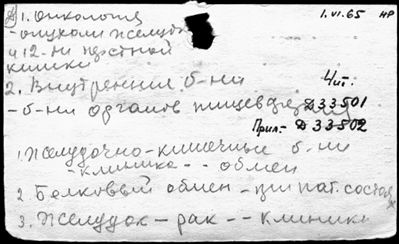 1. Онкология 1.VI.65 НР
- опухоли желудк
и 12-ти перстной
кишки
2. Внутренние б-ни Чит:
- б-ни органов пищеварения Д33501
Прил.- Д33502
1. Желудочно-кишечные б-ни
- клиника -- обмен
2. Белковый обмен - при пат. состоя
3. Желудок - рак -- клиника